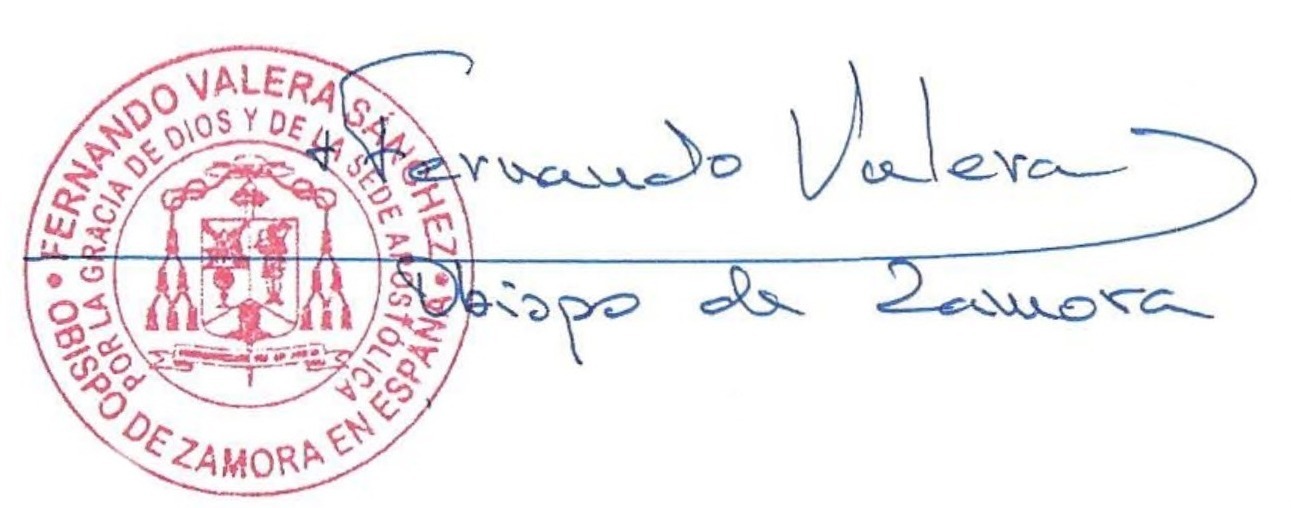 FERNANDO VALERA SÁNCHEZ
POR LA GRACIA DE DIOS Y DE LA SEDE APOSTÓLICA
OBISPO DE ZAMORA EN ESPAÑA
+ Fernando Valera
Obispo de Zamora